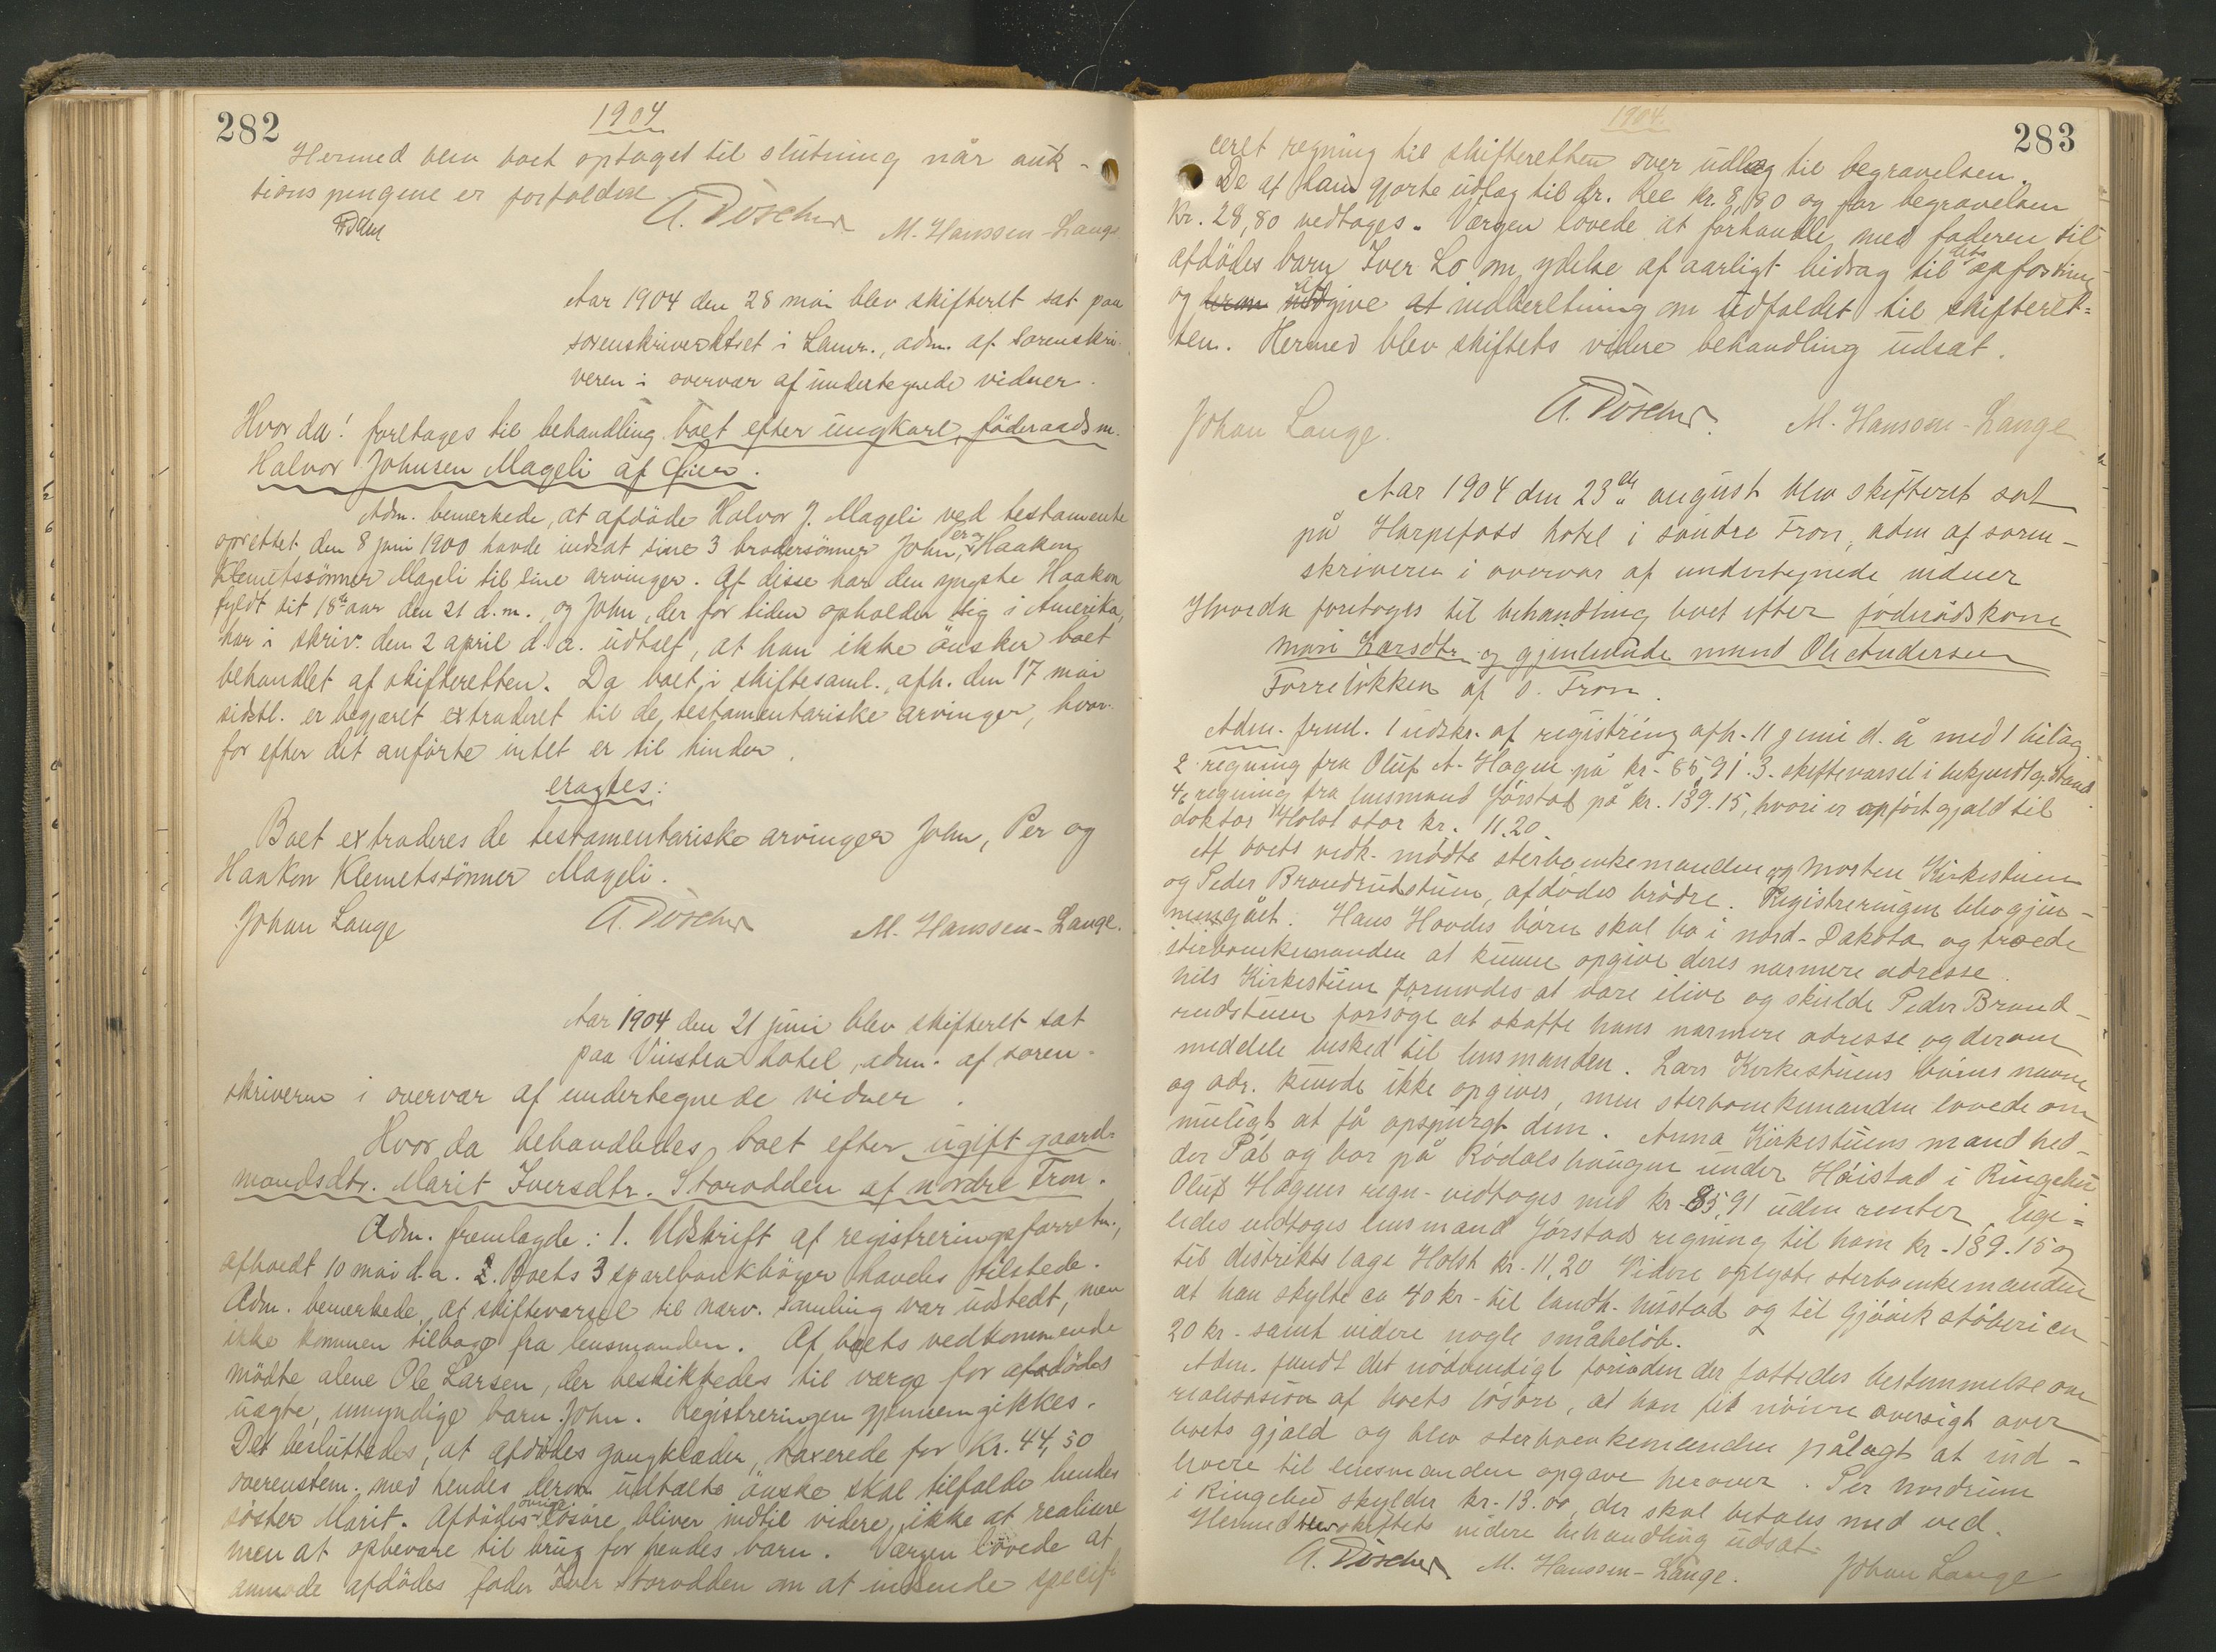 282
1904
Hermed blev boet optaget til slutning når auk-
tions pengene er forfaldne
A. Döscher
M. Hanssen-Lange
Aar 1904 den 28 mai blev skifteret sat paa
sorenskriverktset i Lamr., adm. af sorenskri-
veren i overvær af undertegnede vidner.
Hvor da! foretages til behandling boet efter ungkarl, föderaadsm.
Halvor Johnsen Mageli af Öier.
Adm. bemerkede, at afdöde Halvor J. Mageli ved testamente
oprettet den 8 juni 1900 havde indsat sine 3 brodersönner John, Per og Haakon
Klemetssönner Mageli til sine arvinger. Af disse har den yngste Haakon
fyldt sit 18de aar den 21 d.m., og John, der for tiden opholder sig i Amerika,
har i skriv. den 2 april d.a. udtalt, at han ikke önsker boet
behandlet af skifteretten. Da boet i skiftesaml. afh. den 17 mai
sidstl. er begjæret extraderet til de testamentariske arvinger, hvor-
for efter det anförte intet er til hinder.
eragtes:
Boet extraderes de testamentariske arvinger John, Per og
Haakon Klemetssönner Mageli.
Johan Lange
A. Döscher
M. Hanssen-Lange.
Aar 1904 den 21 juni blev skifteret sat
paa Vinstra hotel, adm. af soren-
skriveren i overvær af undertegnede vidner.
Hvor da behandledes boet efter ugift gaard-
mandsdtr. Marit Iversdtr. Storodden af nordre Fron.
Adm. fremlagde: 1. Udskrift af registreringsforretn.,
afholdt 10 mai d.a. 2. Boets 3 sparebankböger havdes tilstede.
Adm. bemerkede, at skiftevarsel til nærv. samling var udstedt, men
ikke kommen tilbage fra lensmanden. Af boets vedkommende
mödte alene Ole Larsen, der beskikkedes til værge for afdödes
uægte, umyndige barn John. Registreringen gjennemgikkes.
Det besluttedes, at afdödes gangklæder, taxerede for Kr. 44,50
overenstem. med hendes derom udtalte önske skal tilfalde hendes
söster Marit. Afdödes övrige lösöre bliver indtil videre ikke at realisere
men at opbevare til brug for hendes barn. Værgen lovede at
anmode afdödes fader Iver Storodden om at indsende specifi-
283
1904.
ceret regning til skifteretten over udlæg til begravelsen.
De af ham gjorte udlæg til dr. Lee kr. 8,80 og for begravelsen
kr. 28,80 vedtages. Værgen lovede at forhandle med faderen til
afdödes barn Iver Lo om ydelse af aarligt bidrag til dets opfostring
og at give indberetning om udfaldet til skifteret-
ten. Hermed blev skiftets videre behandling udsat.
Johan Lange.
A. Döscher
M. Hanssen-Lange
Aar 1904 den 23de august blev skifteret sat
på Harpefoss hotel i söndre Fron, adm af soren-
skriveren i overvær af undertegnede vidner
Hvorda foretoges til behandling boet efter föderådskone
Mari Larsdtr. og gjenlevende mand Ole Andersen
Forrelökken af s. Fron.
Adm. freml. 1 udskr. af registring afh. 11 juni d. å med 1 bilag
2 regning fra Oluf A. Hagen på kr. 85,91. 3. skiftevarsel i bekjendtg. stand.
4, regning fra lensmand Jörstad på kr. 139.15, hvori er opfört gjæld til
doktor Holst stor kr. 11.20.
Af boets vedk. mödte sterboenkemanden og Morten Kirkestuen
og Peder Brandrudstuen, afdödes brödre. Registreringen blev gjen-
nemgået. Hans Hovdes börn skal bo i nord-Dakota og troede
sterboenkemanden at kunne opgive deres nærmere adresse.
Nils Kirkestuen formodes at være ilive og skulde Peder Brand-
rudstuen forsöge at skaffe hans nærmere adresse og derom
meddele besked til lensmanden. Lars Kirkestuens börns navne
og adr. kunde ikke opgives, men sterboenkemanden lovede om
muligt at få opspurgt dem. Anna Kirkestuens mand hed-
der Pål og bor på Rödalshaugen under Höistad i Ringebu
Oluf Hagens regn. vedtoges med kr. 85,91 uden renter, lige-
ledes vedtoges lensmand Jörstads regning til ham kr. 139.15 og
til distriktslæge Holst kr. 11,20 Videre oplyste sterboenkemanden
at han skylte ca 40 kr. til landh. Nustad og til Gjövik stöberi ca
20 kr. samt videre nogle småbelöb.
Adm. fandt det nödvendigt forinden der fattedes bestemmelse om
realisasion af boets lösöre, at han fik nöiere oversigt over
boets gjæld og blev sterboenkemanden pålagt at ind-
levere til lensmanden opgave herover. Per Nordrum
i Ringebu skylder kr. 13.00, der skal betales med ved.
Hermed blev skiftets videre behandling udsat.
A. Döscher
M. Hanssen-Lange.
Johan Lange